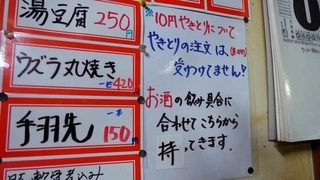 湯豆腐 250円
ウズラ丸焼き
一羽 420
手羽先 一本 150円
※10円やきとりについて
やきとりの注文は、
受けつけてません!
お酒の飲み具合に
合わせてこちらから
持ってきます.